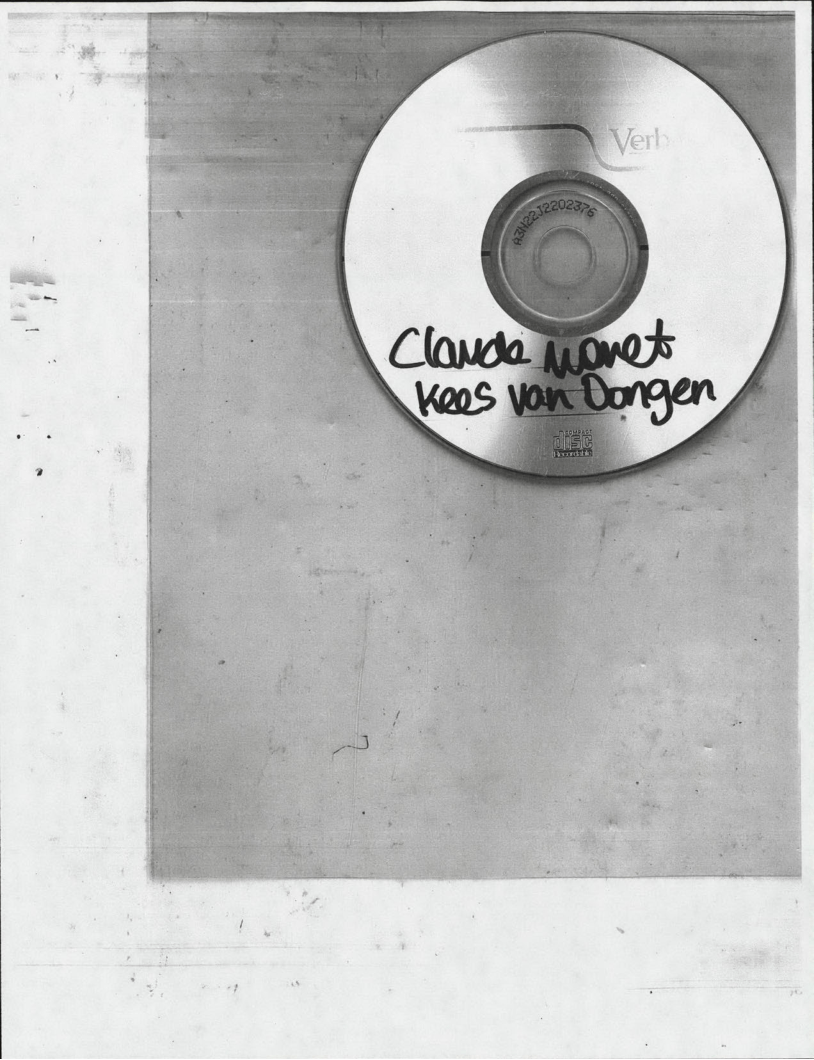 Verb
A3N22J2202376
Claude Monet
Kees van Dongen
COMPACT
disc
Recordable